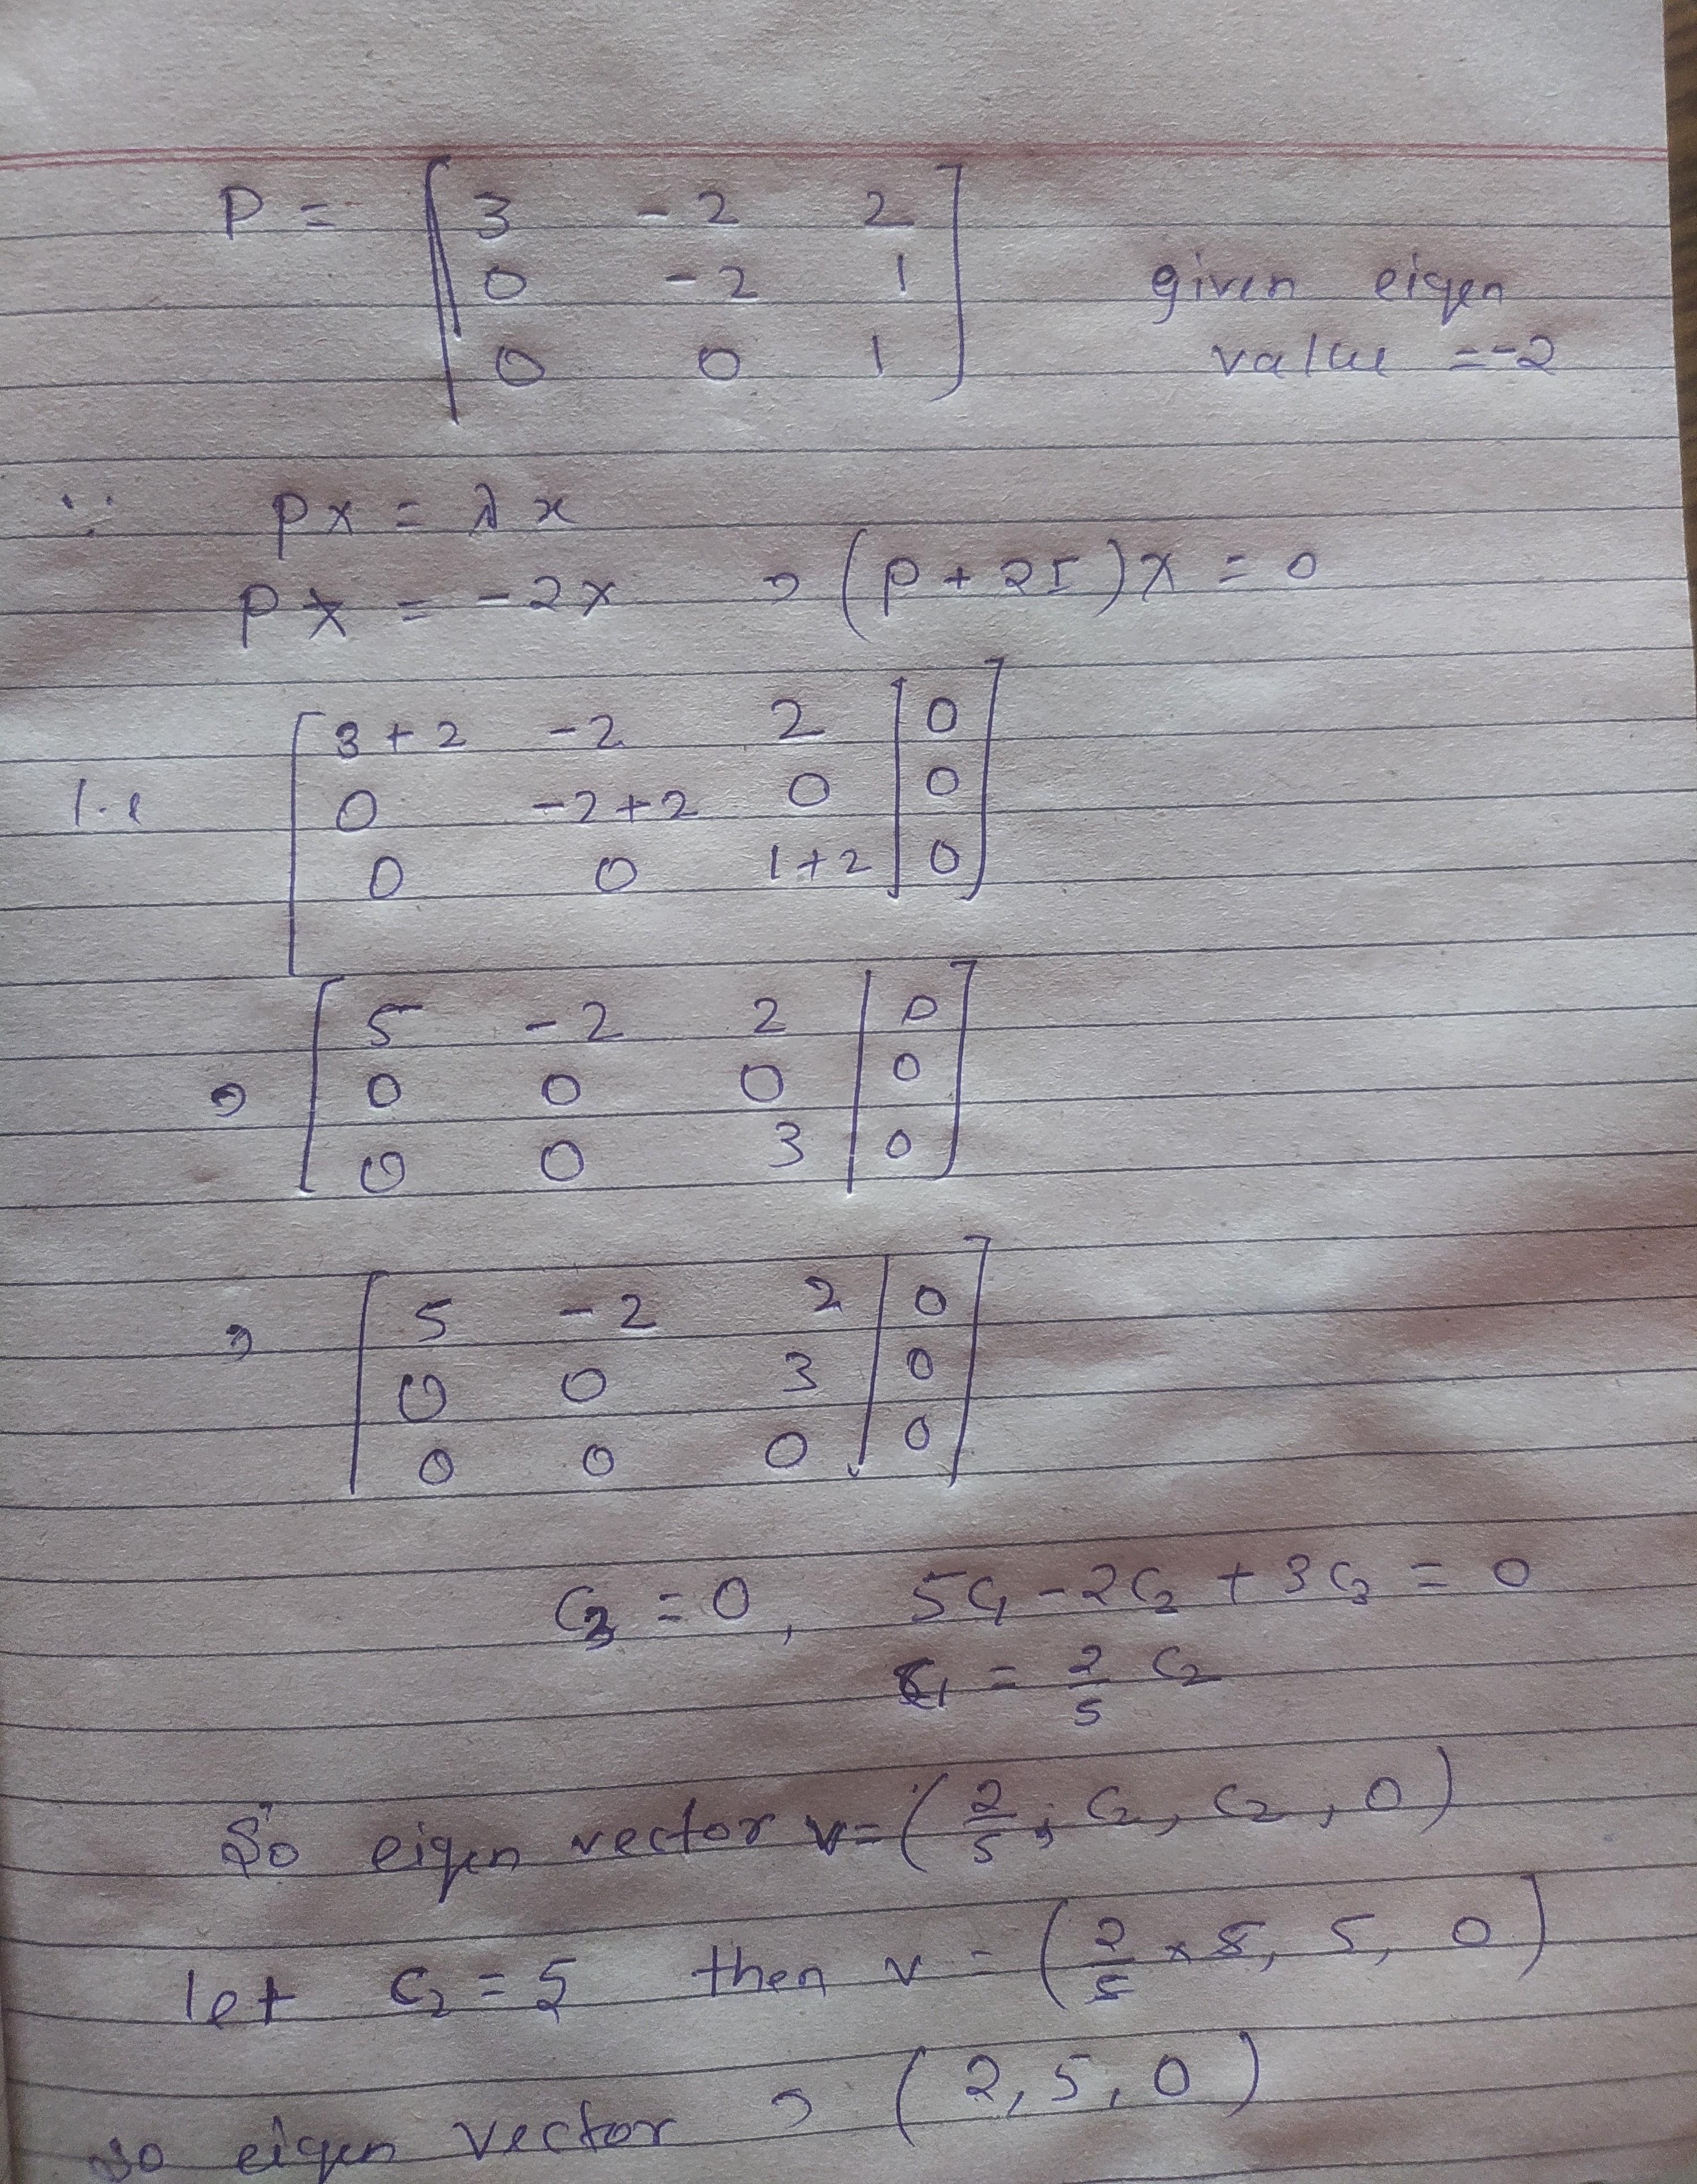 P = [ 3 -2 2
0 -2 1
0 0 1 ]
given eigen
value = -2
∵ Px = λx
Px = -2x ⇒ (P + 2I)x = 0
i.e [ 3+2 -2 2 | 0
0 -2+2 0 | 0
0 0 1+2 | 0 ]
⇒ [ 5 -2 2 | 0
0 0 0 | 0
0 0 3 | 0 ]
⇒ [ 5 -2 2 | 0
0 0 3 | 0
0 0 0 | 0 ]
C₃ = 0, 5C₁ - 2C₂ + 3C₃ = 0
C₁ = 2/5 C₂
So eigen vector v = ( 2/5, C₂, C₂, 0 )
let C₂ = 5 then v = ( 2/5 × 5, 5, 0 )
so eigen vector ⇒ ( 2, 5, 0 )